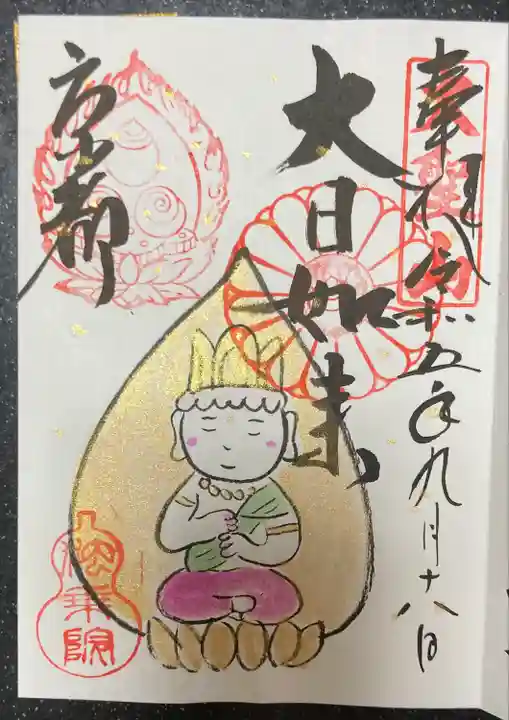 奉拝 令和五年九月十八日
大日如来
京都